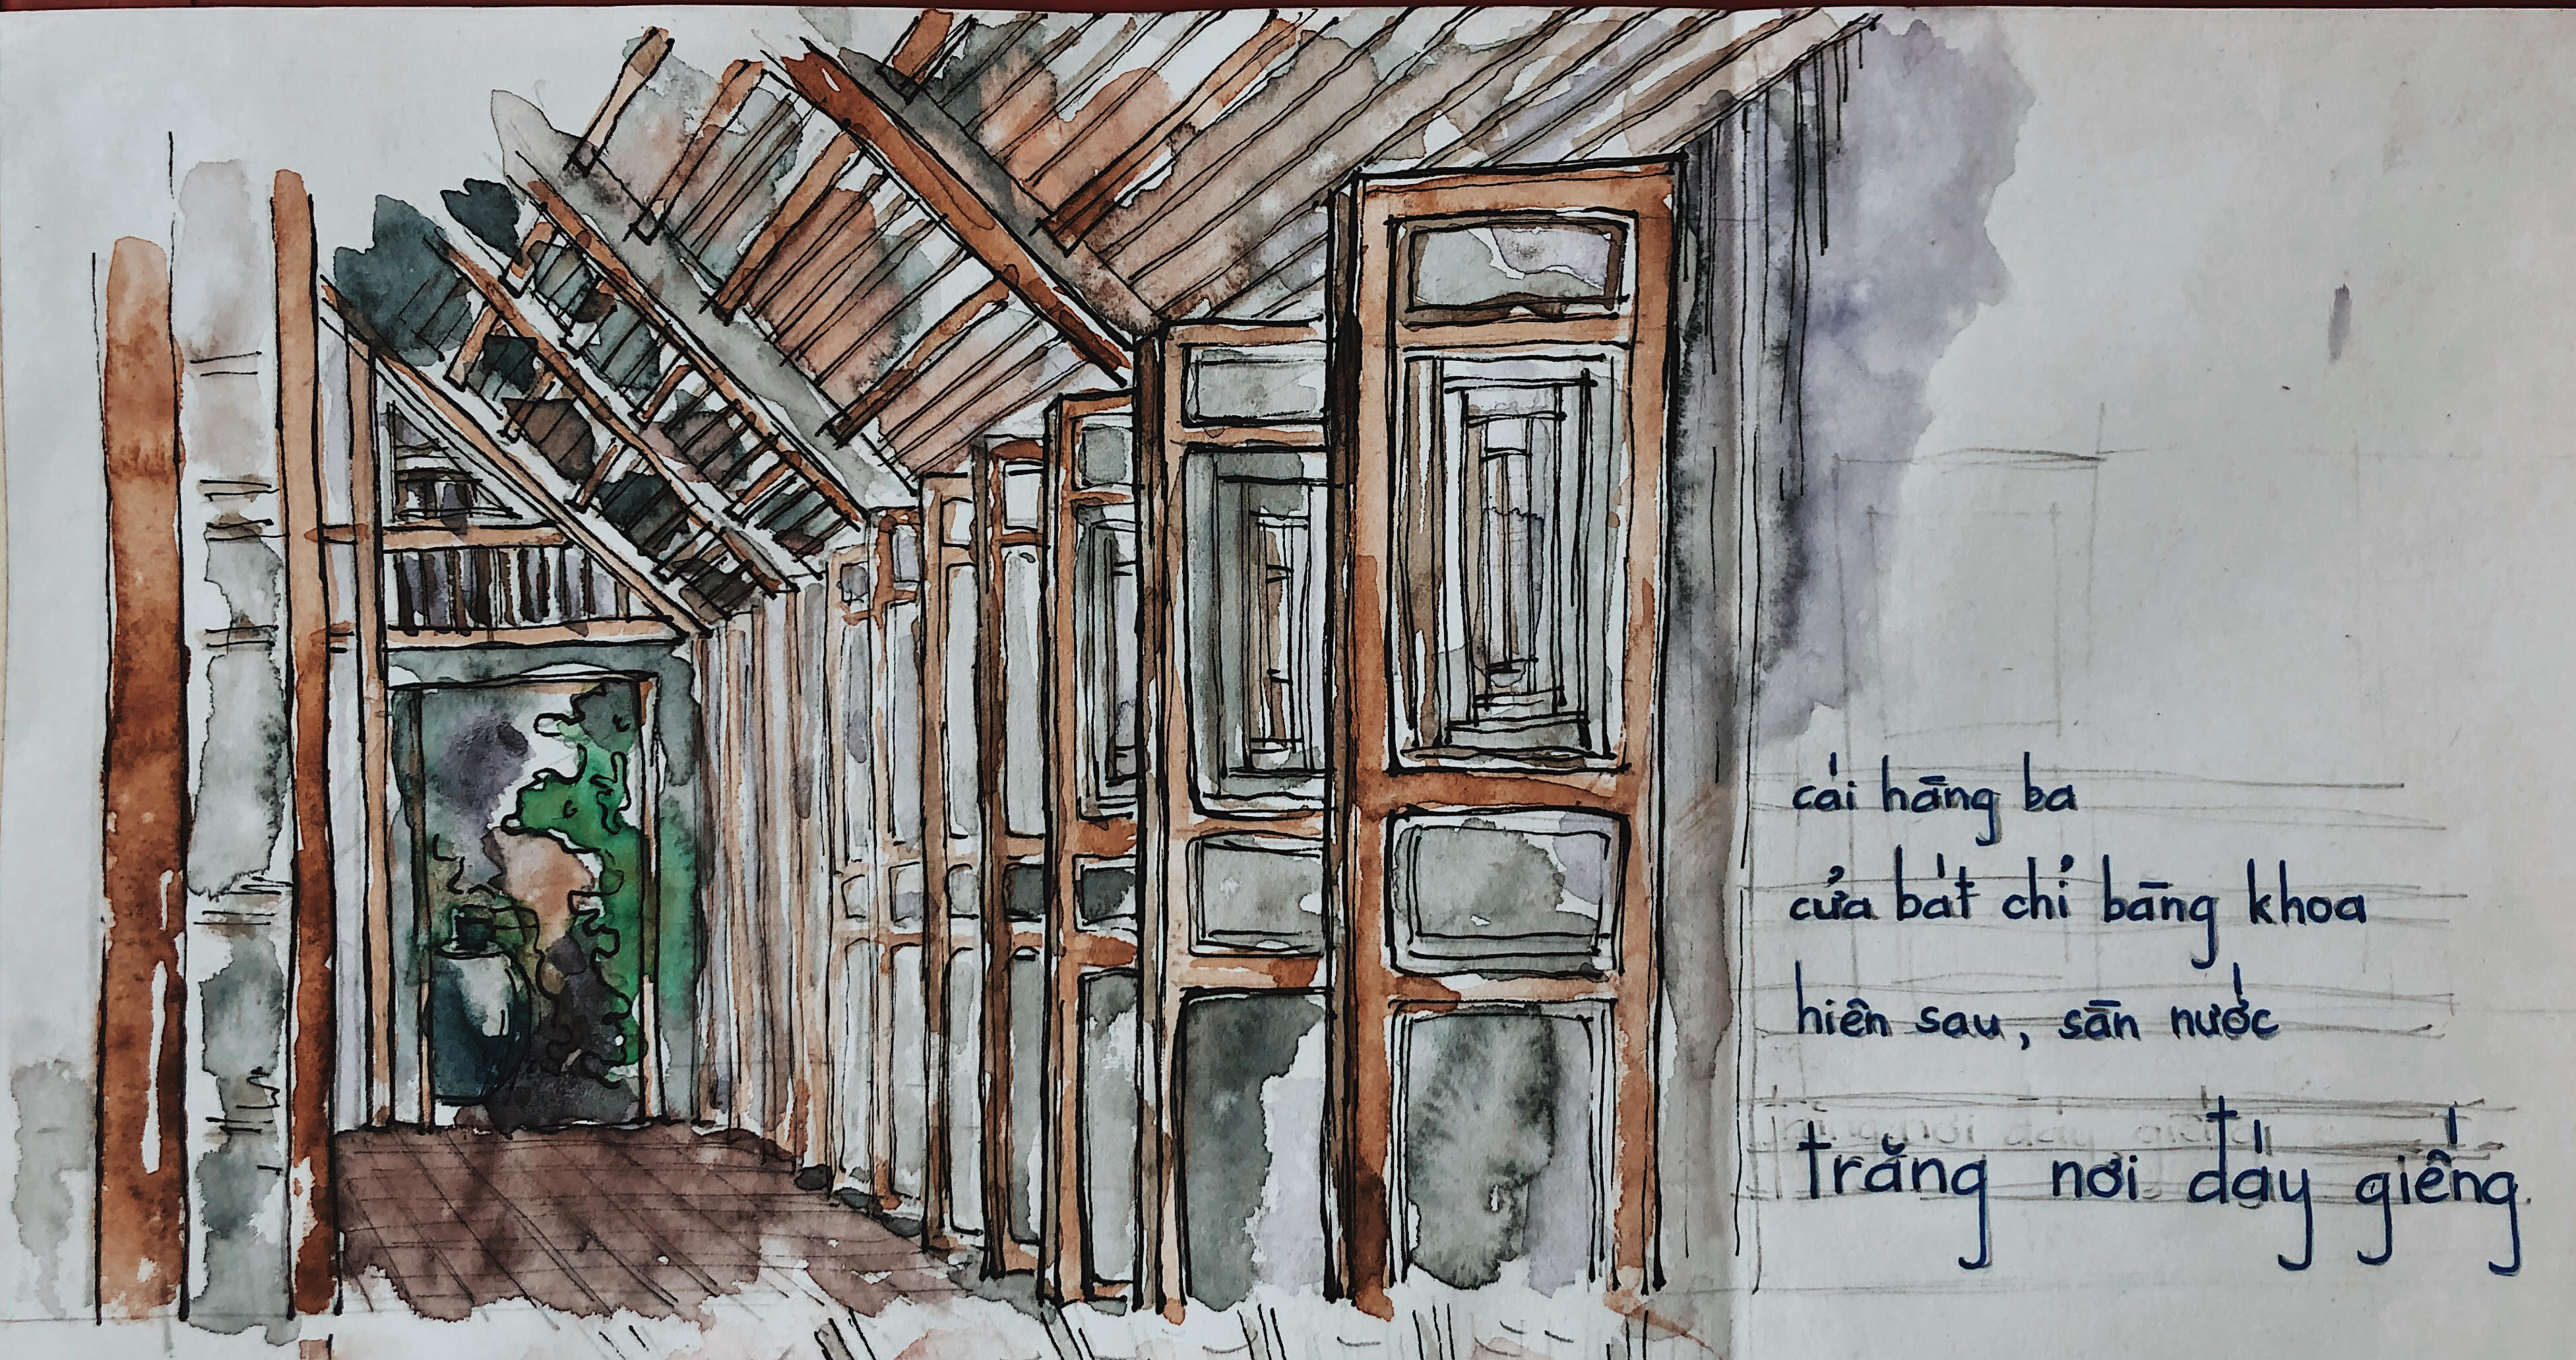 cái hàng ba
cửa bát chỉ bàng khoa
hiên sau, sàn nước
trăng nơi đáy giếng